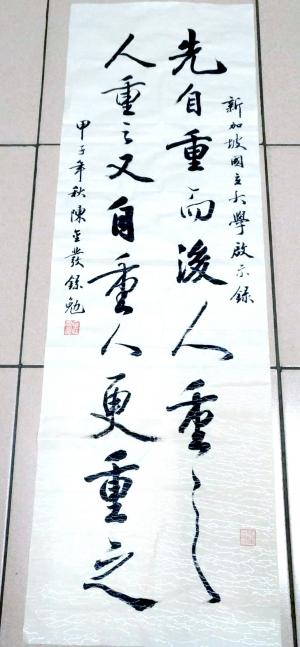 新加坡國立大學啟示錄
先自重而後人重之
人重之又自重人更重之
甲子年秋陳金發錄勉